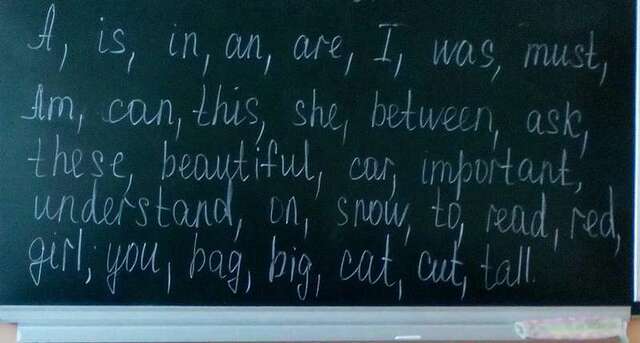 A, is, in, an, are, I, was, must,
Am, can, this, she, between, ask,
these, beautiful, car, important,
understand, on, snow, to, read, red,
girl, you, bag, big, cat, cut, tall.